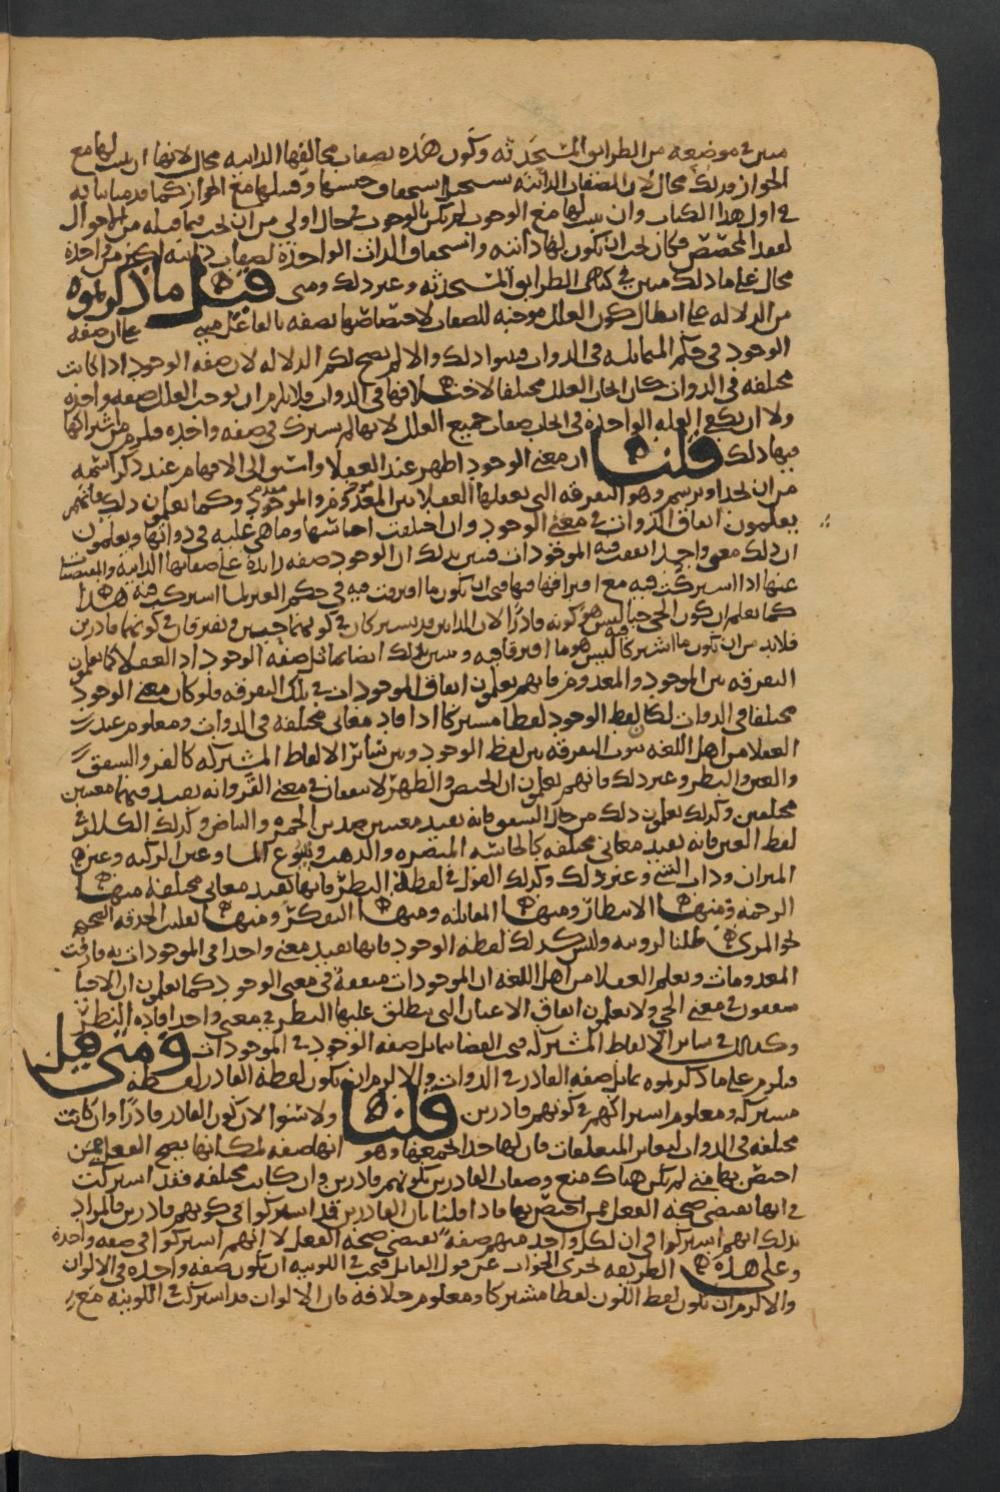 مبين في موضعه من الطرايق المستحدثه وكون هذه بصفات مخالفها الذاتيه محال لانها ان ثبت لها مع
الجواز فذلك محال لان الصفات الذاتيه يستحيل استحقاق جنسها وقبيلها مع الجواز كما قد بيناه
في اول هذا الكتاب وان ثبت لها مع الوجوب لم يكن بالوجوب في حال اولى من ان يجب فيما قبله من الاحوال
لفقد المخصص فكان يجب ان يكون لها ذاتيه واستحقاق الذات الواحدة لصفات ذاتيه اكثر من واحدة
محال على ما ذلك مبين في كتابي الطرايق المستحدثه وغير ذلك ومتى قيل ما ذكرتموه
من الدلاله على ابطال كون العلل موجبه للصفات لاختصاصها بصفه بالفاعل مبني على ان صفه
الوجود في حكم المتماثله في الذوات فبينوا ذلك والا لم يصح لكم الدلاله لان صفه الوجود اذا كانت
مختلفه في الذوات كان ايجاب العلل مختلفا لاختلافها في الذوات فلا يلزم ان توجب العلل صفه واحده
ولا ان توجب العله الواحدة في الحال صفات جميع العلل لانها لم تشترك في صفه واحده فيلزم من اشتراكها
فيها ذلك قلنا ان معنى الوجود اظهر عند العقلا واسبق الى الافهام عند ذكر اسمه
من ان يحد او يرسم وهو التفرقه التي يعقلها العقلا بين المعدوم والموجود وكما يعلمون ذلك فانهم
يعلمون اتفاق الذوات في معنى الوجود وان اختلفت اجناسها وما هي عليه في ذواتها ويعلمون
ان ذلك معنى واحد اتفقت فيه الموجودات فتبين بذلك ان الوجود صفه زايدة على صفاتها الذاتيه والمقتضاه
عنها اذا اشتركت فيه مع افتراقها فيها فيجب ان يكون ما افترقت فيه في حكم الغير لما اشتركت فيه هذا
كما نعلم ان كون الحي حيا ليس هو كونه قادرا لان الذاتين قد يشتركان في كونهما حيين ويفترقان في كونهما قادرين
فلا بد من ان يكون ما اشتركا فيه ليس هو ما افترقا فيه وتبين بذلك ايضا تماثل صفه الوجود اذ العقلا كما يعلمون
التفرقه بين الموجود والمعدوم فانهم يعلمون اتفاق الموجودات في تلك التفرقه فلو كان معنى الوجود
مختلفا في الذوات لكان لفظ الوجود لفظا مشتركا اذ افاد معاني مختلفه في الذوات ومعلوم عند
العقلا من اهل اللغه ثبوت التفرقه بين لفظ الوجود وبين سائر الالفاظ المشتركه كالقرء والشفق
والعين والنظر وغير ذلك فانهم يعلمون ان الحيض والطهر لا يتفقان في معنى القرء وانه يفيد فيهما معنيين
مختلفين وكذلك يعلمون ذلك من حال الشفق فانه يفيد معنيين ضدين الحمره والبياض وكذلك الكلام في
لفظ العين فانه يفيد معاني مختلفه كالحاسه المبصره والذهب وينبوع الما وعين الركبه وعين
الميزان وذات الشي وغير ذلك وكذلك القول في لفظة النظر فانها تفيد معاني مختلفه منها
الرحمه ومنها الانتظار ومنها المقابله ومنها التفكر ومنها تقليب الحدقه الصحيحه
نحو المرئي طلبا لرويته وليس كذلك لفظه الوجود فانها تفيد معنى واحدا في الموجودات به فارقت
المعدومات ويعلم العقلا من اهل اللغه ان الموجودات متفقه في معنى الوجود كما يعلمون ان الاحيا
متفقون في معنى الحي ولا يعلمون اتفاق الاعيان التي ينطلق عليها النظر في معنى واحد افاده النظر
وكذلك في سائر الالفاظ المشتركه فيجب القضا بتماثل صفه الوجود في الموجودات ومتى قيل
فيلزم على ما ذكرتموه تماثل صفه القادر في الذوات والا لزم ان يكون لفظة القادر لفظة
مشتركه ومعلوم اشتراكهم في كونهم قادرين قلنا ولا سوا لان كون القادر قادرا وان كانت
مختلفه في الذوات لتغاير المتعلقات فان لها حدا يجمعها وهو انها صفه لمكانها يصح الفعل ممن
اختص بها متى لم يكن هناك منع وصفات القادرين بكونهم قادرين وان كانت مختلفه فقد اشتركت
في انها تقتضي صحه الفعل ممن اختص بها فاذا قلنا بان القادرين قد اشتركوا في كونهم قادرين فالمراد
بذلك انهم اشتركوا في ان لكل واحد منهم صفه تقتضي صحه الفعل لا انهم اشتركوا في صفه واحدة
وعلى هذه الطريقه يجري الجواب عن قول القائل فيجب في اللونيه ان تكون صفه واحده في الالوان
والا لزم ان يكون لفظ اللون لفظا مشتركا ومعلوم خلافه فان الالوان قد اشتركت في اللونيه مع